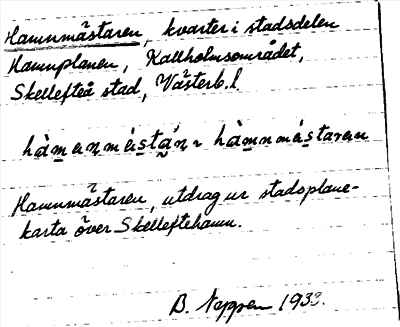 Hamnmästaren, kvarter i stadsdelen
Hamnplanen, Kallholmsområdet,
Skellefteå stad, Västerb. l.
hàmənmástá̰n ~ hàmnmástaren
Hamnmästaren, utdrag ur stadsplane-
karta över Skelleftehamn.
B. 1933.